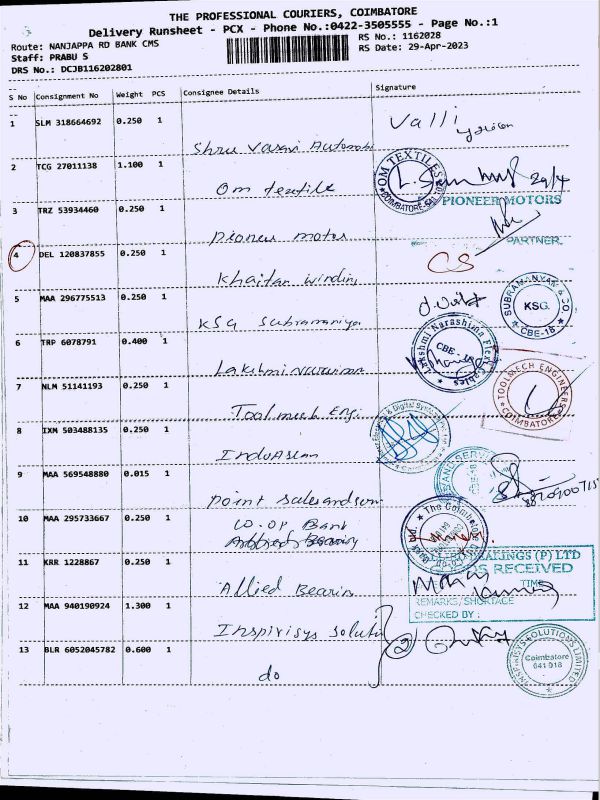 THE PROFESSIONAL COURIERS, COIMBATORE
Delivery Runsheet - PCX - Phone No.:0422-3505555 - Page No.:1
Route: NANJAPPA RD BANK CMS
RS No.: 1162028
Staff: PRABU S
RS Date: 29-Apr-2023
DRS No.: DCJB116202801
S No Consignment No Weight PCS Consignee Details Signature
1 SLM 318664692 0.250 1 Valli
Shree Vasavi Automobi
2 TCG 27011138 1.100 1 OM TEXTILES COIMBATORE 29/4
Om textile
3 TRZ 53934460 0.250 1 PIONEER MOTORS
Pioneer motor PARTNER
4 DEL 120837855 0.250 1 CS
Khaitan winding
5 MAA 296775513 0.250 1 SUBRAMANYAN & CO. KSG. CBE-18
KSG Subramaniya
6 TRP 6078791 0.400 1 Lakshmi Narashima CBE-18
Lakshmi Narasiman
7 NLM 51141193 0.250 1 TOOLMECH ENGINEERS COIMBATORE
Toolmech Engi
8 IXM 503488135 0.250 1 & Digital Systems
IndoAsian
9 MAA 569548880 0.015 1
Point Salesandserv
10 MAA 295733667 0.250 1 The Coimbatore
CO-OP Bank
11 KRR 1228867 0.250 1 ALLIED BEARINGS (P) LTD
GOODS RECEIVED
TIME
Allied Bearin Mohan Kumar
REMARKS/SHORTAGE
CHECKED BY :
12 MAA 940190924 1.300 1
Inspirisys Soluti
13 BLR 6052045782 0.600 1 INSPIRISYS SOLUTIONS LIMITED Coimbatore 641 018
do